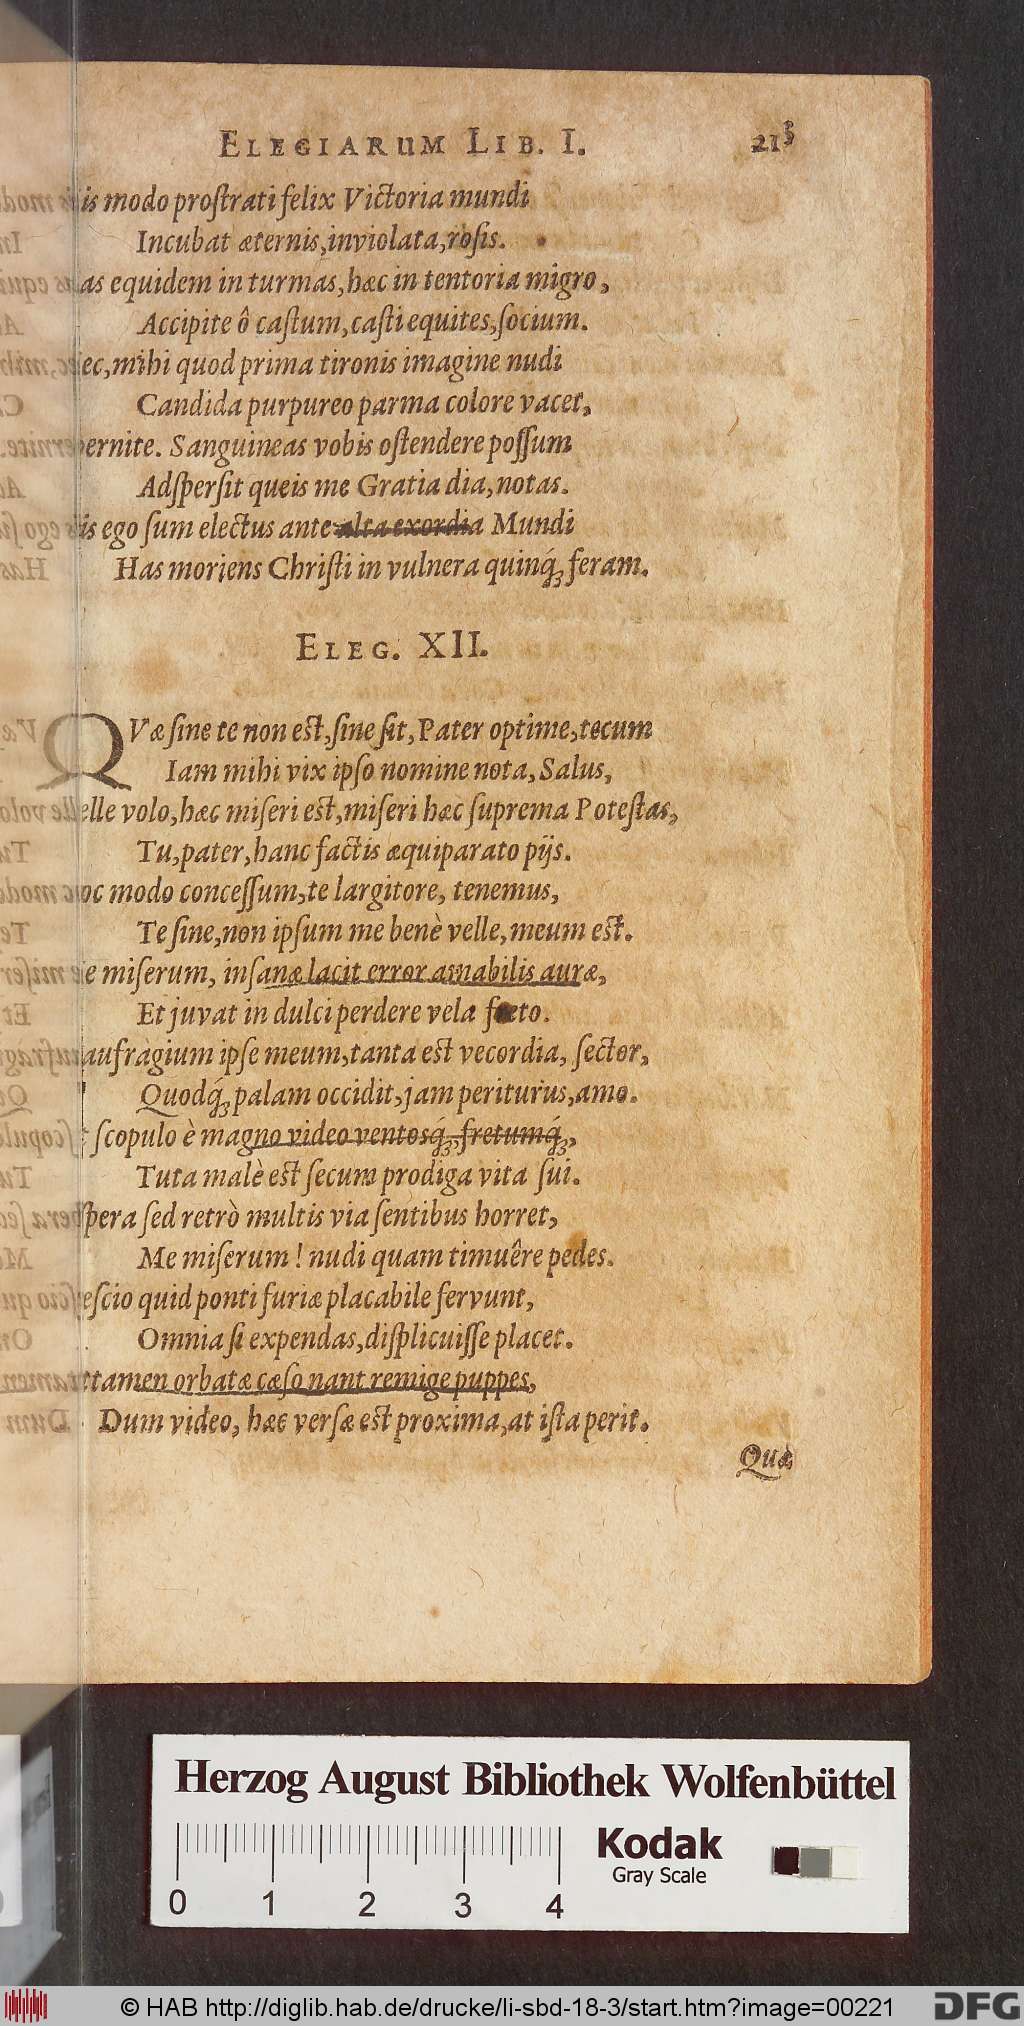 ELEGIARUM LIB. I. 213
is modo proſtrati felix Victoria mundi
Incubat æternis, inviolata, roſis.
as equidem in turmas, hæc in tentoria migro,
Accipite ô caſtum, caſti equites, ſocium.
ec, mihi quod prima tironis imagine nudi
Candida purpureo parma colore vacet,
pernite. Sanguineas vobis oſtendere poſſum
Adſperſit queis me Gratia dia, notas.
is ego ſum electus ante alta exordia Mundi
Has moriens Chriſti in vulnera quinq́; feram.
ELEG. XII.
QVæ ſine te non eſt, ſine ſit, Pater optime, tecum
Iam mihi vix ipſo nomine nota, Salus,
elle volo, hæc miſeri eſt, miſeri hæc ſuprema Poteſtas,
Tu, pater, hanc factis æquiparato pijs.
oc modo conceſſum, te largitore, tenemus,
Te ſine, non ipſum me benè velle, meum eſt.
e miſerum, inſanæ lacit error amabilis auræ,
Et juvat in dulci perdere vela freto.
aufragium ipſe meum, tanta eſt vecordia, ſector,
Quodq́; palam occidit, jam periturus, amo.
t ſcopulo è magno video ventosq́;, fretumq́;,
Tuta malè eſt ſecum prodiga vita ſui.
ſpera ſed retrò multis via ſentibus horret,
Me miſerum! nudi quam timuêre pedes.
eſcio quid ponti furiæ placabile fervunt,
Omnia ſi expendas, diſplicuiſſe placet.
ttamen orbatæ cæſo nant remige puppes,
Dum video, hæc verſæ eſt proxima, at iſta perit.
Quæ
Herzog August Bibliothek Wolfenbüttel
Kodak
Gray Scale
0 1 2 3 4
© HAB http://diglib.hab.de/drucke/li-sbd-18-3/start.htm?image=00221
DFG